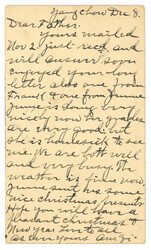 Yangchow Dec 8.
Dear Father:
Yours mailed
Nov 2 just rec'd and
will answer soon
enjoyed your long
letter also one from
Frances & one from
June is doing very
nicely now Her grades
are very good but
she is homesick to see
me. We are both well
and very busy. The
weather is fine now
June sent us some
nice Christmas presents
Hope you will have a
pleasant Christmas &
New Year Love to all
as ever yours